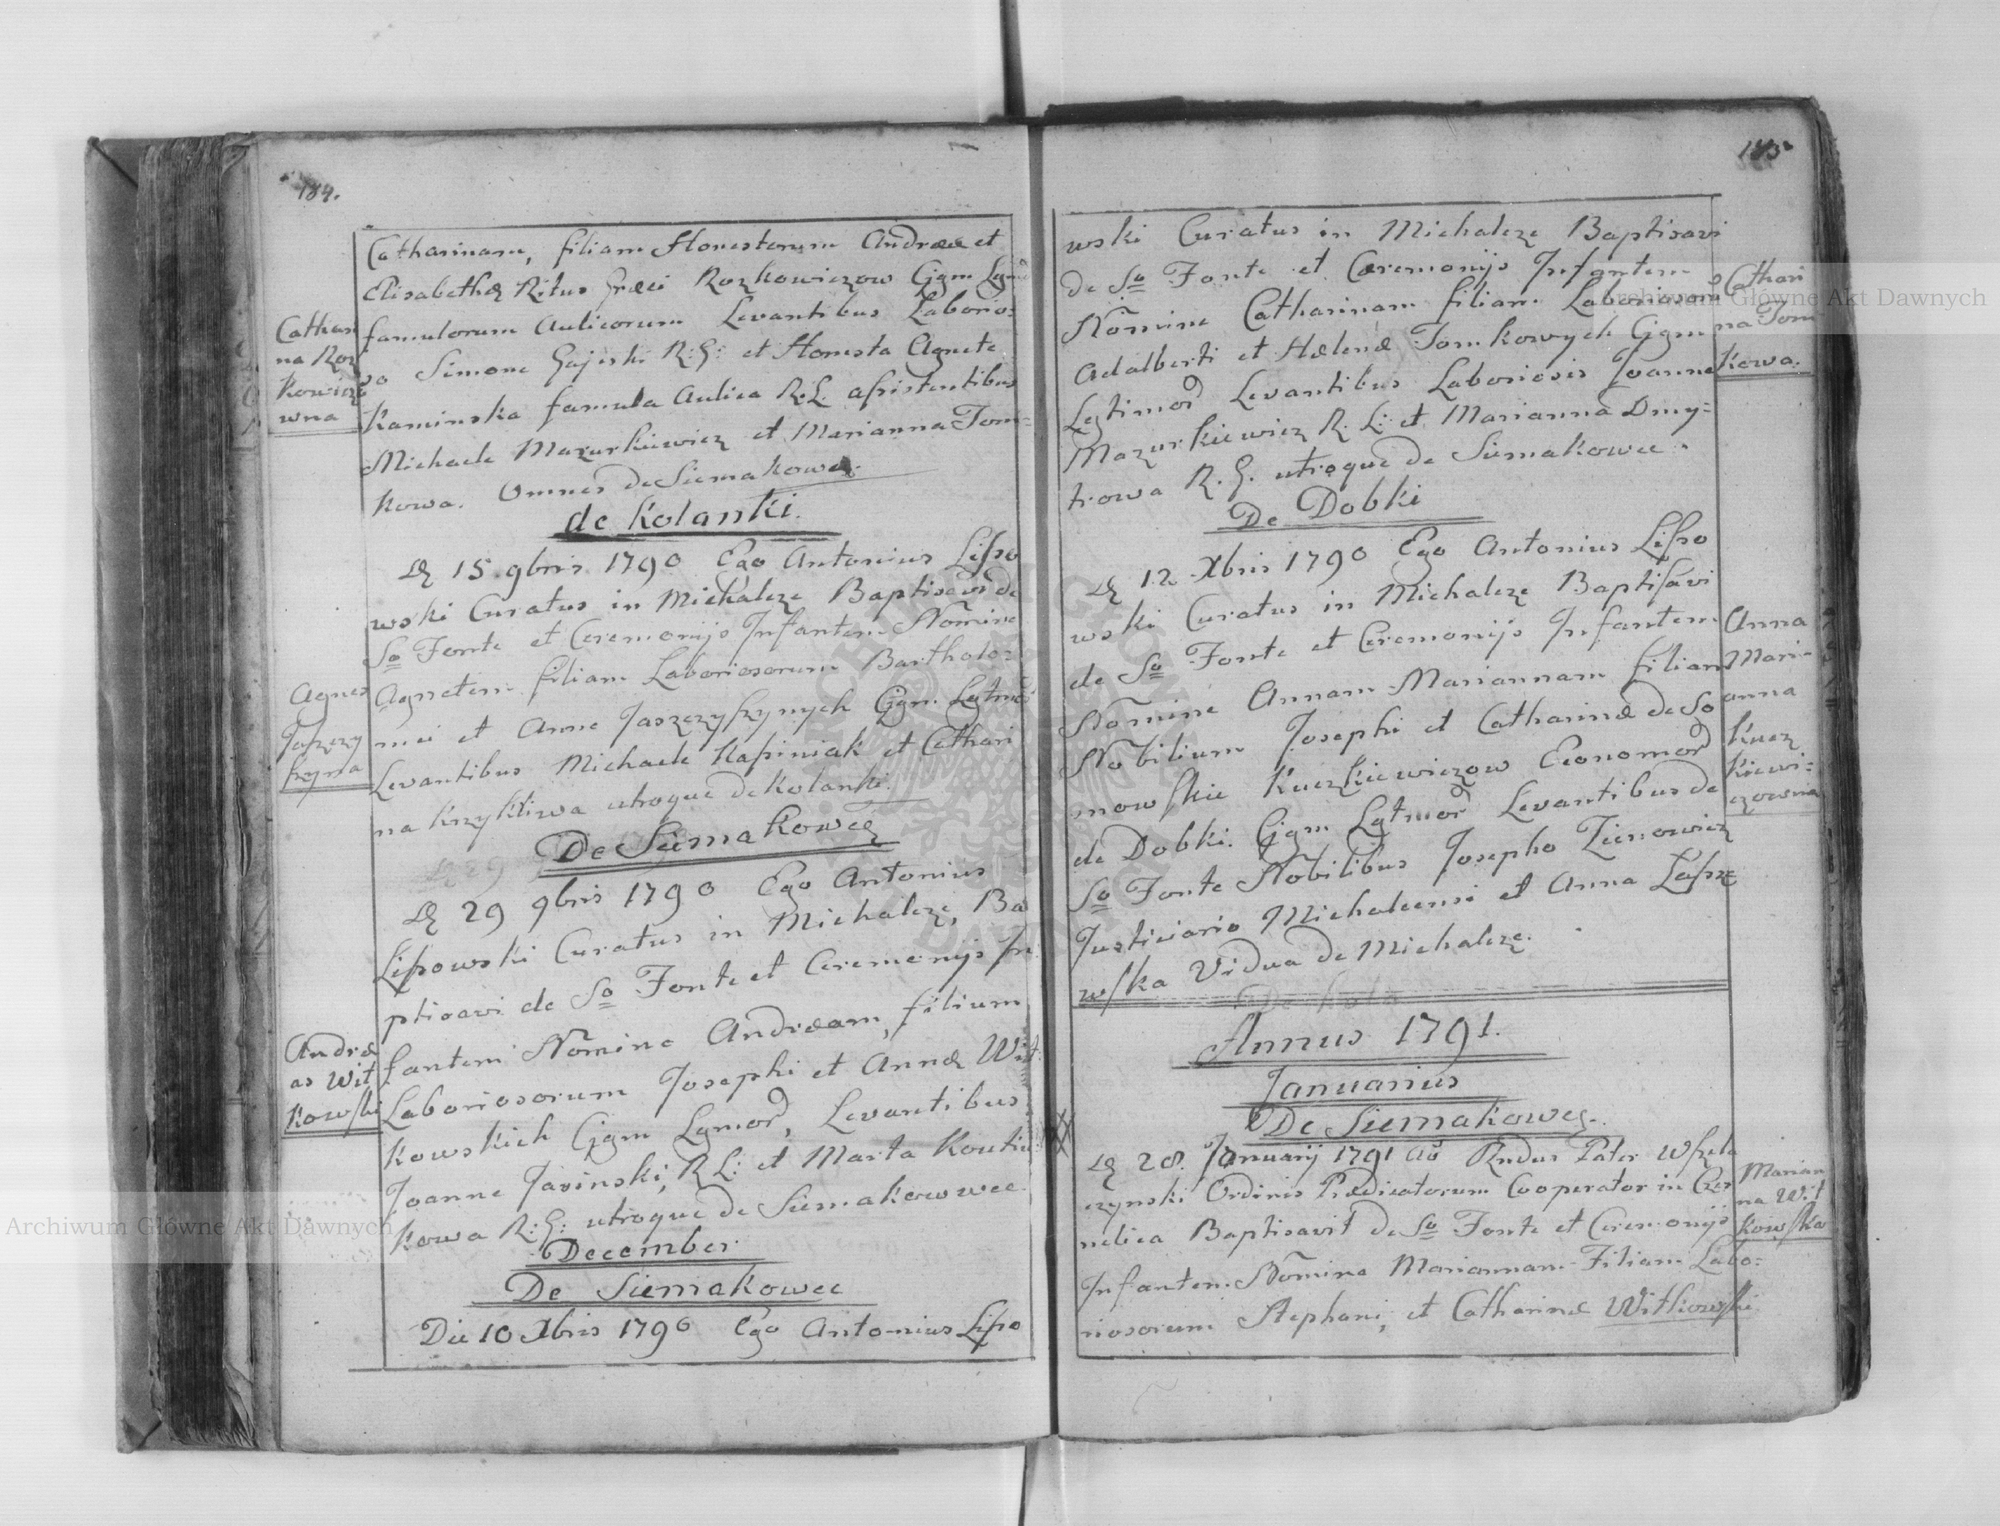 184.
Catharinam, filiam Honestorum Andreæ et
Elisabethæ Ritus Græci Rozkowiczow Cjgm Lgmō
famulorum Aulicorum Levantibus Laborio:
so Simone Gajeski R: G: et Honesta Agnete
Kaminska famula Aulica R. L. assistentibus
Michaele Mazurkiewicz et Marianna Tom=
kowa. Omnes de Siemakowce.
Cathari
na Roz
kowicz
wna
de Kolanki.
Dę 15 9bris 1790 Ego Antonius Lipo
wski Curatus in Michalcze Baptisavi de
So Fonte et Ceremonijs Infantem Nomine
Agnetem filiam Laboriosorum Bartholo=
mei et Anne Jaszczyszynych Cjgm Lgtmō
Levantibus Michaele Kasiniak et Cathari
na Krzykliwa utroque de Kolanki.
Agnes
Jaszczy
szyna
De Siemakowcę
Dę 29 9bris 1790 Ego Antonius
Lipowski Curatus in Michalcze, Ba
ptisavi de So Fonte et Ceremonijs In
fantem Nomine Andream, filium
Laboriosorum Josephi et Annæ Wit
kowskich Cjgm Lgmor, Levantibus
Joanne Jasinski, R L: et Marta Koutiu
kowa R: G: utroque de Siemakowwce.
Andre
as Wit
kowski
December
De Siemakowce
Die 10 Xbris 1790 Ego Antonius Lipo
185.
wski Curatus in Michalcze Baptisavi
de So Fonte et Cæremonijs Infantem
Nomine Catharinam filiam Laboriosorum
Adalberti et Helenæ Tomkowych Cjgm
Lgtimor Levantibus Laboriosis Joanne
Mazurkiewicz R. L: et Marianna Dmy=
trowa R. G. utroque de Siemakowce.
Cathari
na Tom
kowa.
De Dobki
Dę 12 Xbris 1790 Ego Antonius Lipo
wski Curatus in Michalcze Baptisavi
de So Fonte et Ceremonijs Infantem
Nomine Annam Mariannam filiam
Nobilium Josephi et Catharinæ de So
mowskie Kuczkiewiczow Economor
de Dobki. Cjgm Lgtmor Levantibus de
So Fonte Nobilibus Josepho Zienowicz
Justiciario Michalcensi et Anna Lasze
wska Vidua de Michalcze.
Anna
Mari=
anna
Kucz
kiewi=
czowna
Annus 1791.
Januarius
De Siemakowcę.
Dę 28. Januarij 1791 Aō Rndus Pater Wszela
czynski Ordinis Prædicatorum Cooperator in Czer
nelica Baptisavit de So Fonte et Ceremonijs
Infantem Nomine Mariannam Filiam Labo=
riosorum Stephani, et Catharinæ Witkowski
Marian
na Wit
kowska
Archiwum Główne Akt Dawnych
Archiwum Główne Akt Dawnych